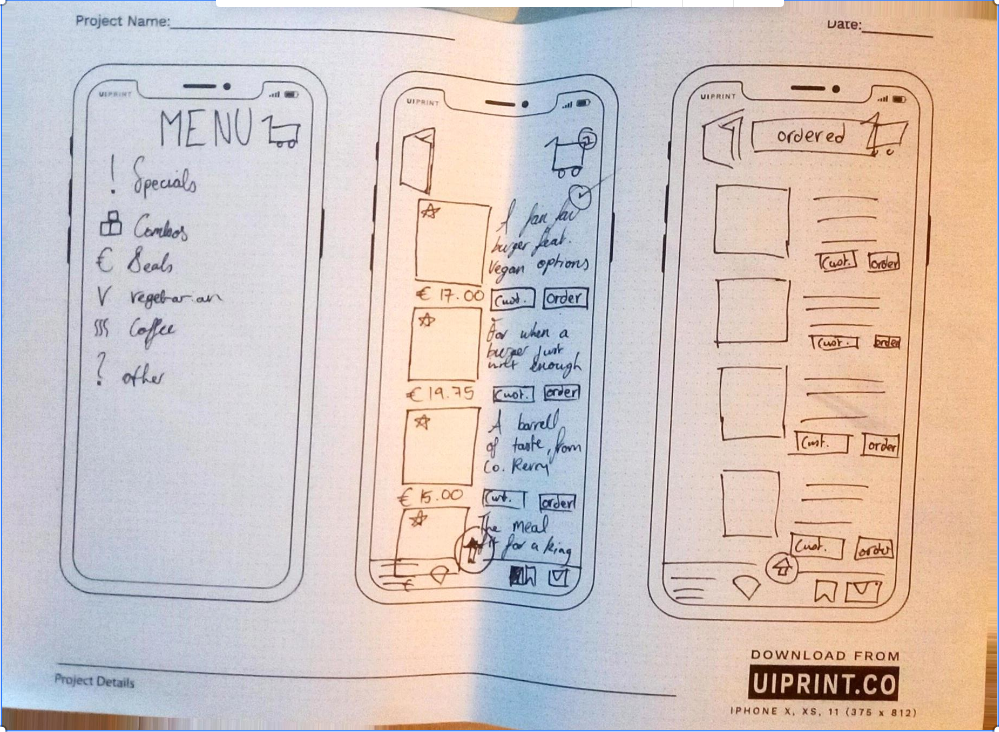 Project Name:
Date:
UIPRINT
MENU
! Specials
Combos
€ Deals
V vegetarian
Coffee
? other
UIPRINT
2
burger feat.
Vegan options
€ 17.00
Cust.
order
For when a
burger just
not enough
€ 19.75
Cust.
order
A barrell
of taste, from
Co. Kerry
€ 15.00
Cust.
order
The meal
fit for a king
€
UIPRINT
ordered
Cust.
order
Cust.
order
Cust.
order
Cust.
order
Project Details
DOWNLOAD FROM
UIPRINT.CO
IPHONE X, XS, 11 (375 x 812)